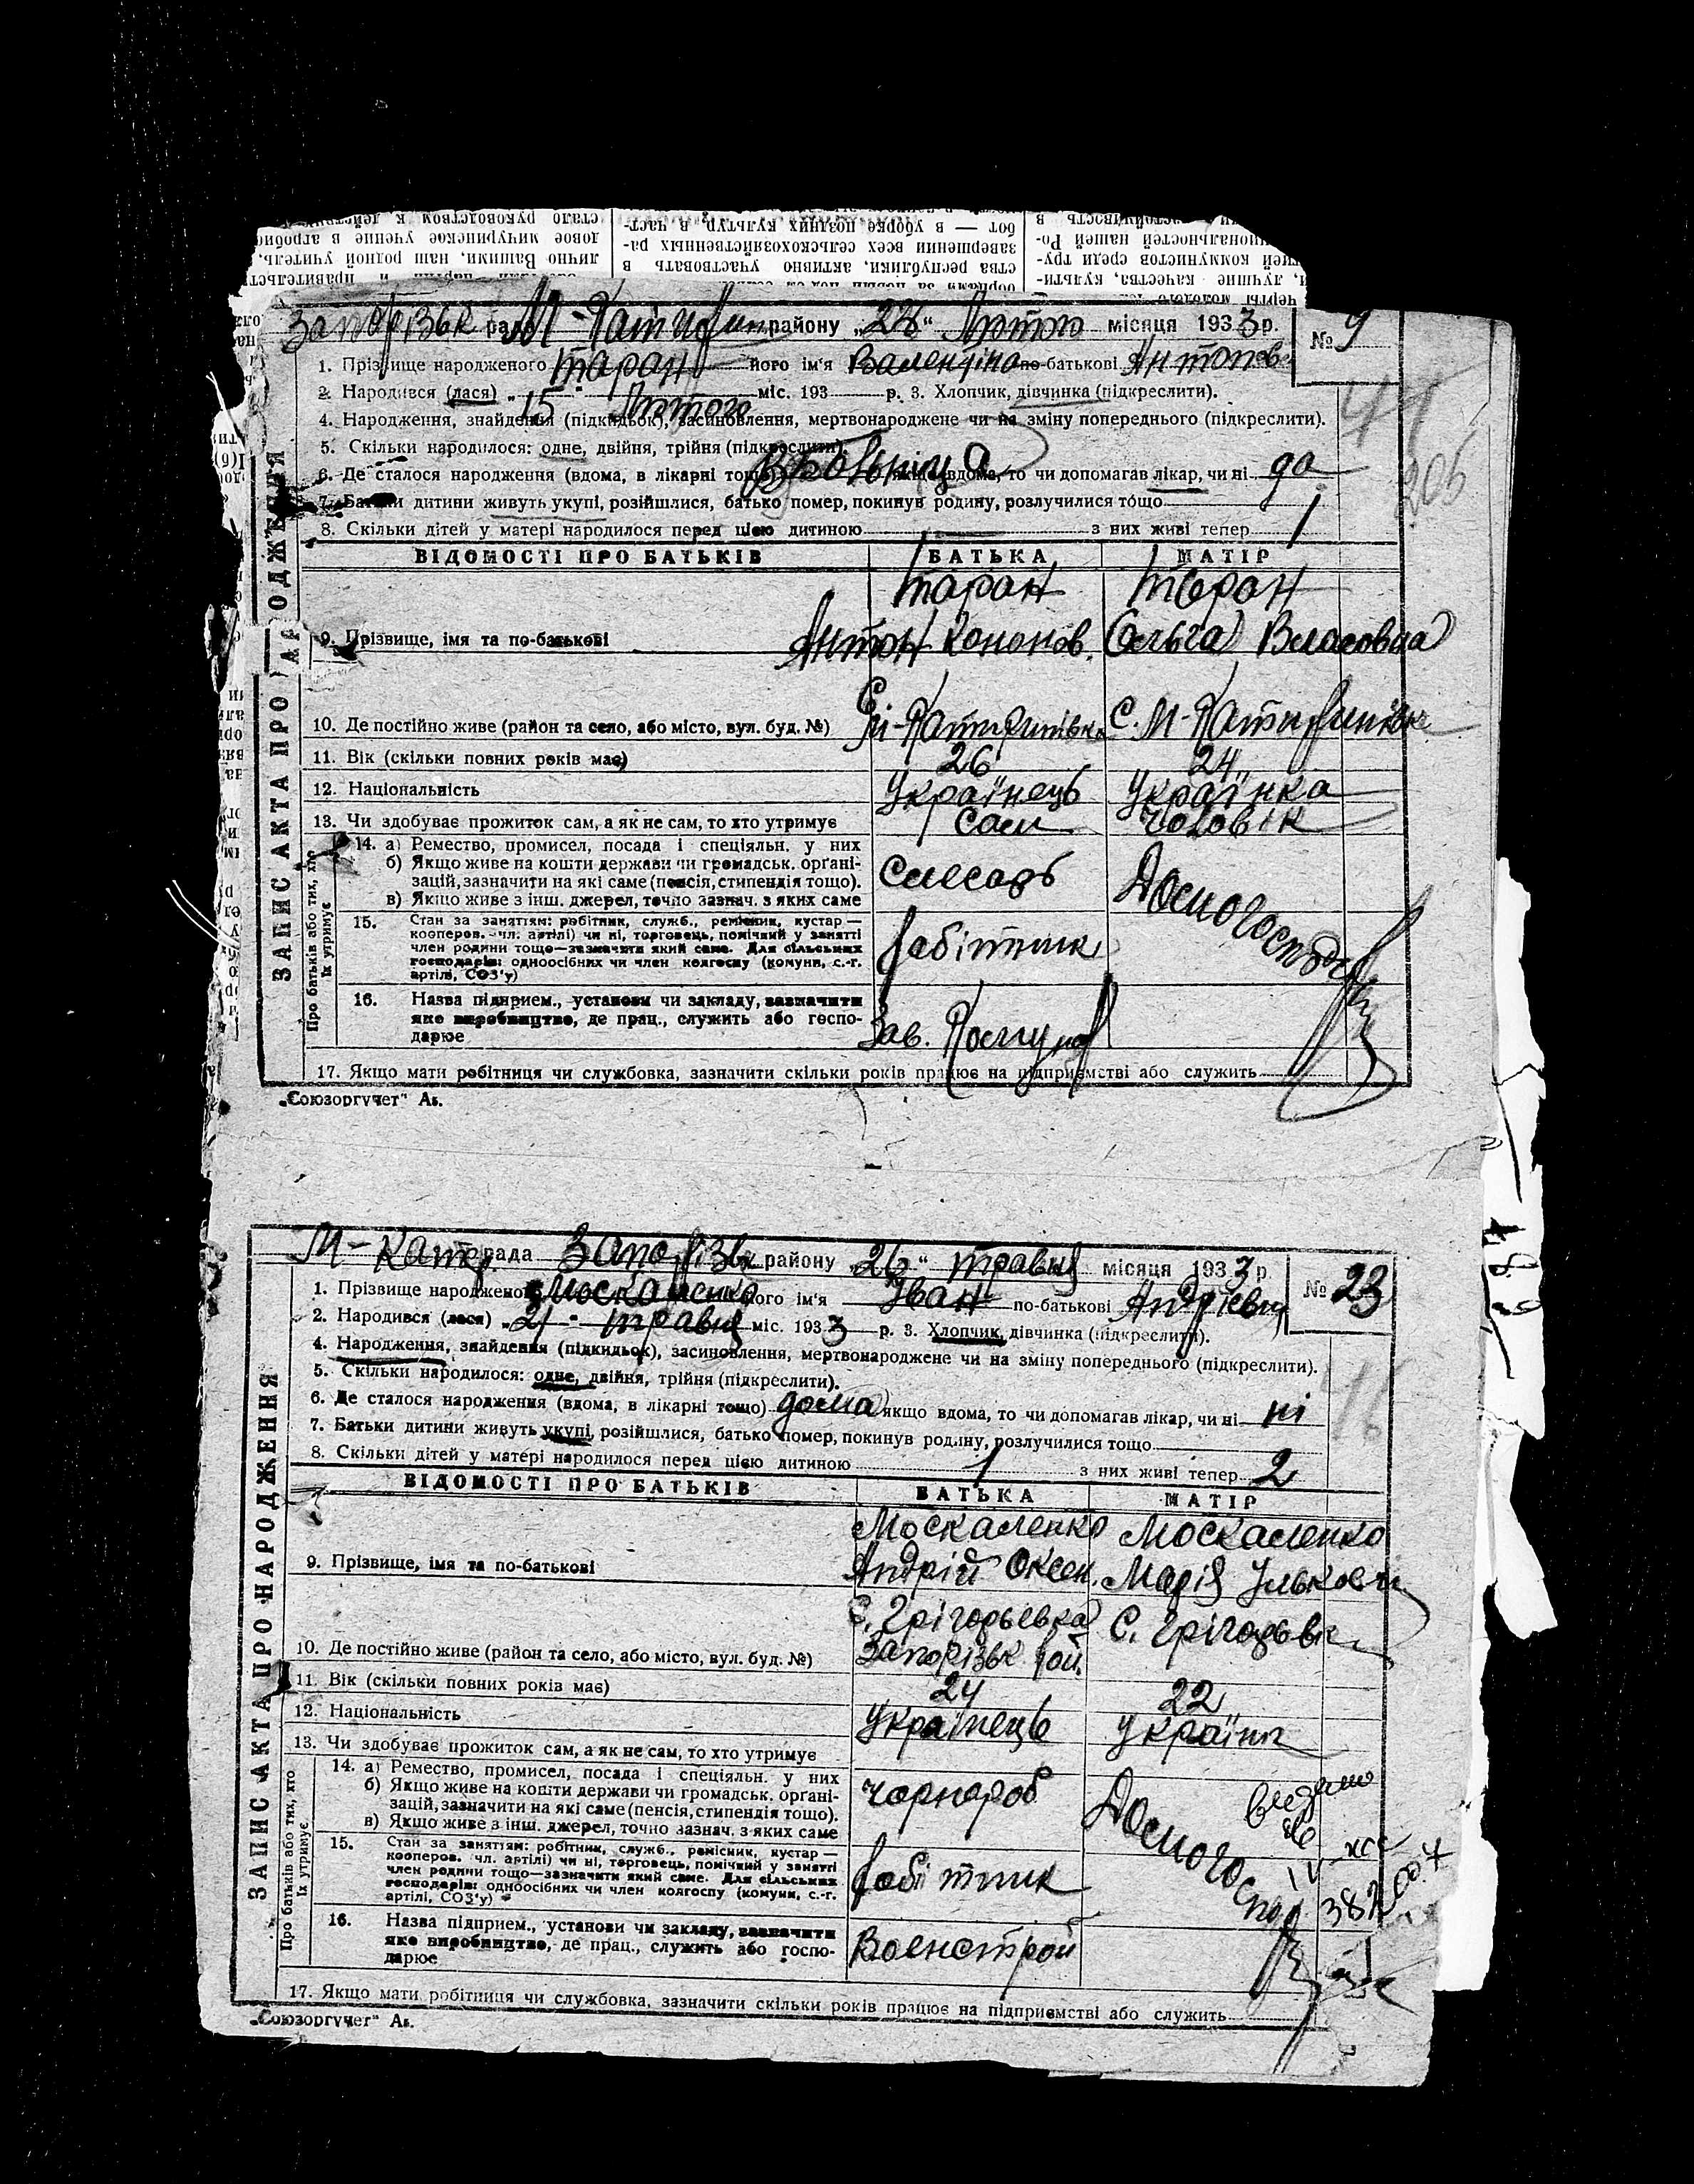 стало руководством к действию
довое мичуринское учение в агробио
лично Вашими, наш родной учитель,
бот — в уборке поздних культур, в част-
завершении всех сельскохозяйственных ра-
ства республики, активно участвовать в
циональностей нашей Ро-
ей коммунистов среди тру-
, лучшие качества, культи-
черты молодого
Запорізьк рада М-Катирин району „28“ Лютого місяця 1933 р. № 9
1. Прізвище народженого Таран його ім'я Валентіна по-батькові Антонов
2. Народився (лася) „15“ Лютого міс. 193 р. 3. Хлопчик, дівчинка (підкреслити).
4. Народження, знайдення (підкидьок), засиновлення, мертвонароджене чи на зміну попереднього (підкреслити).
5. Скільки народилося: одне, двійня, трійня (підкреслити)
6. Де сталося народження (вдома, в лікарні тощо) якщо вдома, то чи допомагав лікар, чи ні да
7. Батьки дитини живуть укупі, розійшлися, батько помер, покинув родину, розлучилися тощо
8. Скільки дітей у матері народилося перед цією дитиною з них живі тепер 1
41
205
ЗАПИС АКТА ПРО НАРОДЖЕННЯ
ВІДОМОСТІ ПРО БАТЬКІВ БАТЬКА МАТІР
Таран Таран
9. Прізвище, імя та по-батькові Антон Кононов. Ольга Власовна
10. Де постійно живе (район та село, або місто, вул. буд. №) С. М-Катиринівка С. М-Катиринівк
11. Вік (скільки повних років має) 26 24
12. Національність Українець Українка
13. Чи здобуває прожиток сам, а як не сам, то хто утримує Сам Чоловік
Про батьків або тих, хто їх утримує
14. а) Ремество, промисел, посада і спеціяльн. у них
б) Якщо живе на кошти держави чи громадськ. органі-
зацій, зазначити на які саме (пенсія, стипендія тощо). Слесарь Домогоспод
в) Якщо живе з інш. джерел, точно зазнач. з яких саме
15. Стан за заняттям: робітник, служб., ремісник, кустар —
кооперов. чл. артілі) чи ні, торговець, помічний у занятті
член родини тощо—зазначити який саме. Для сільських Робітник
господарів: одноосібних чи член колгоспу (комуни, с.-г.
артілі, СОЗ'у)
16. Назва підприєм., установи чи закладу, зазначити
яке виробництво, де прац., служить або госпо- Зав. Комунар
дарює
17. Якщо мати робітниця чи службовка, зазначити скільки років працює на підприємстві або служить
„Союзоргучет“ Ав.
М-Катер. рада Запорізьк району „26“ травня місяця 1933 р. № 23
1. Прізвище народженого Москаленко його ім'я Іван по-батькові Андрієвич
2. Народився (лася) „21“ травня міс. 1933 р. 3. Хлопчик, дівчинка (підкреслити).
4. Народження, знайдення (підкидьок), засиновлення, мертвонароджене чи на зміну попереднього (підкреслити).
5. Скільки народилося: одне, двійня, трійня (підкреслити).
6. Де сталося народження (вдома, в лікарні тощо) дома якщо вдома, то чи допомагав лікар, чи ні ні
7. Батьки дитини живуть укупі, розійшлися, батько помер, покинув родину, розлучилися тощо
8. Скільки дітей у матері народилося перед цією дитиною 1 з них живі тепер 2
ЗАПИС АКТА ПРО НАРОДЖЕННЯ
ВІДОМОСТІ ПРО БАТЬКІВ БАТЬКА МАТІР
Москаленко Москаленко
9. Прізвище, імя та по-батькові Андрій Оксен. Марія Ільковн
С. Грігорьевка С. Грігорьевк
10. Де постійно живе (район та село, або місто, вул. буд. №) Запорізьк рай.
11. Вік (скільки повних років має) 24 22
12. Національність Українець Україн
13. Чи здобуває прожиток сам, а як не сам, то хто утримує
Про батьків або тих, хто їх утримує
14. а) Ремество, промисел, посада і спеціяльн. у них
б) Якщо живе на кошти держави чи громадськ. органі- Чорнороб Домогоспод
зацій, зазначити на які саме (пенсія, стипендія тощо).
в) Якщо живе з інш. джерел, точно зазнач. з яких саме
15. Стан за заняттям: робітник, служб., ремісник, кустар —
кооперов. чл. артілі) чи ні, торговець, помічний у занятті
член родини тощо—зазначити який саме. Для сільських Робітник
господарів: одноосібних чи член колгоспу (комуни, с.-г.
артілі, СОЗ'у)
16. Назва підприєм., установи чи закладу, зазначити
яке виробництво, де прац., служить або госпо- Военстрой
дарює
17. Якщо мати робітниця чи службовка, зазначити скільки років працює на підприємстві або служить
„Союзоргучет“ Ав.